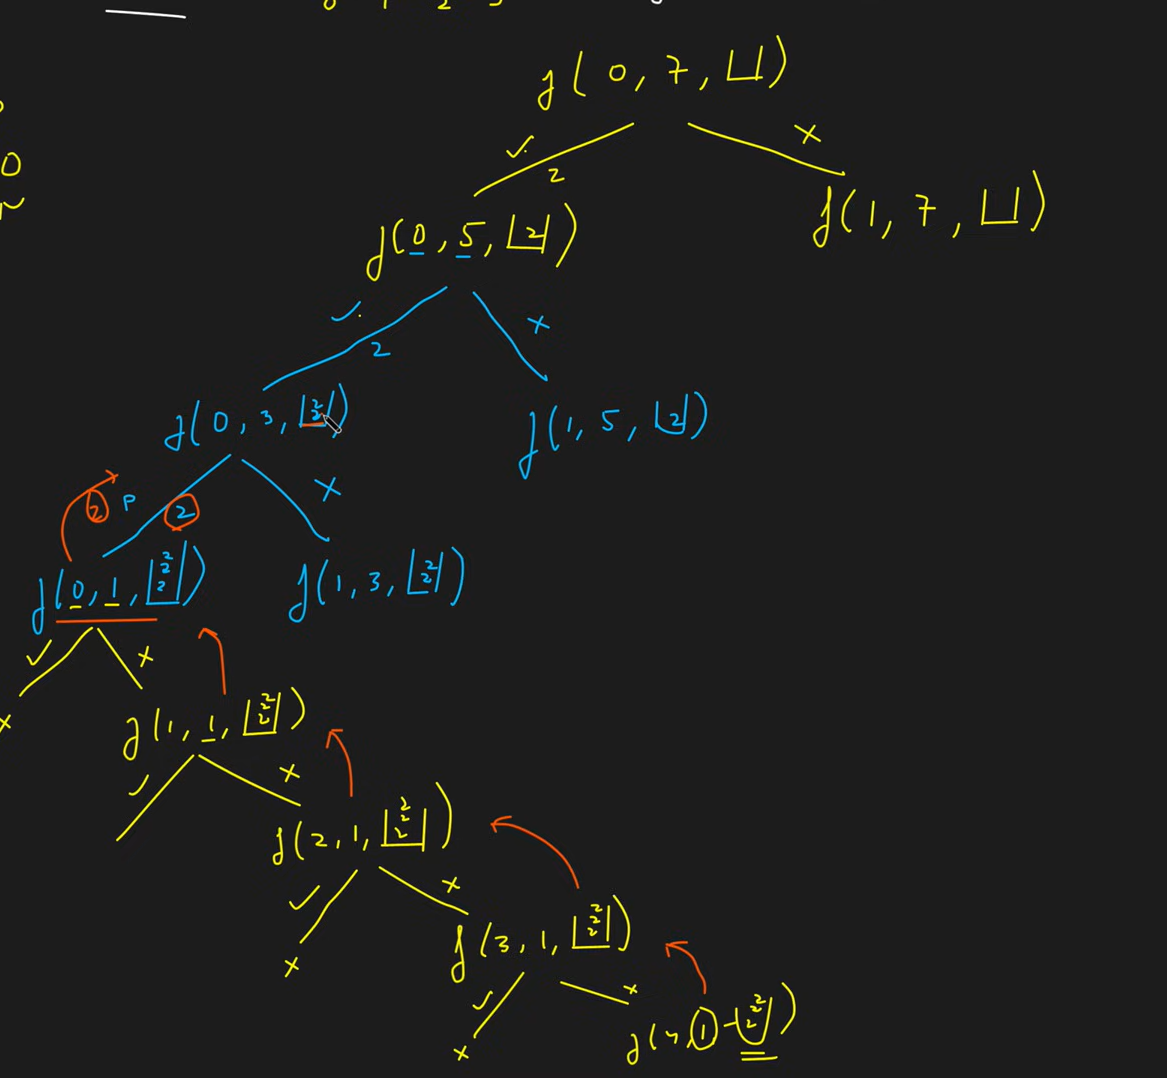 0 1 2 3
f(0, 7, [])
✓ 2 ×
f(0, 5, [2])
f(1, 7, [])
✓ 2 ×
f(0, 3, [2 2])
f(1, 5, [2])
2 P 2 ×
f(0, 1, [2 2 2])
f(1, 3, [2 2])
✓ ×
×
f(1, 1, [2 2 2])
✓ ×
f(2, 1, [2 2 2])
✓ ×
×
f(3, 1, [2 2 2])
✓ ×
×
f(4, 1 - [2 2 2])